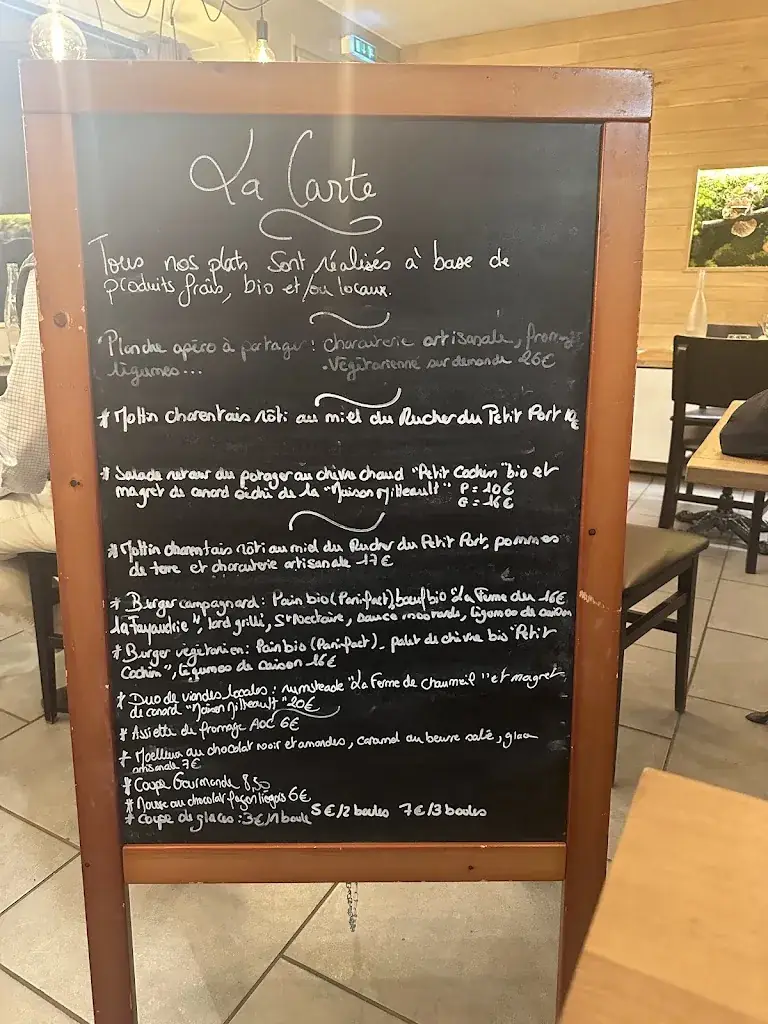 La Carte
Tous nos plats sont réalisés à base de
produits frais, bio et/ou locaux.
Planche apéro à partager : charcuterie artisanale, fromage,
légumes... Végétarienne sur demande 26€
* Mottin charentais rôti au miel du Rucher du Petit Port
* Salade retour du potager au chèvre chaud "Petit Cochin" bio et
magret de canard séché de la "Maison Mitteault" P = 10€
G = 16€
* Mottin charentais rôti au miel du Rucher du Petit Port, pommes
de terre et charcuterie artisanale 17€
* Burger campagnard : Pain bio (Pani-fact), boeuf bio "La Ferme de 16€
la Fayaudrie", lard grillé, St Nectaire, sauce moutarde, légumes de saison
* Burger végétarien : Pain bio (Pani-fact), palet de chèvre bio "Petit
Cochin", légumes de saison 16€
* Duo de viandes locales : rumsteack "La Ferme de Chaumeil" et magret
de canard "Maison Mitteault" 20€
* Assiette de fromage AOC 6€
* Moelleux au chocolat noir et amandes, caramel au beurre salé, glace
artisanale 7€
* Coupe Gourmande 8,50
* Mousse au chocolat façon liégois 6€
* Coupe de glaces : 3€/1 boule 5€/2 boules 7€/3 boules